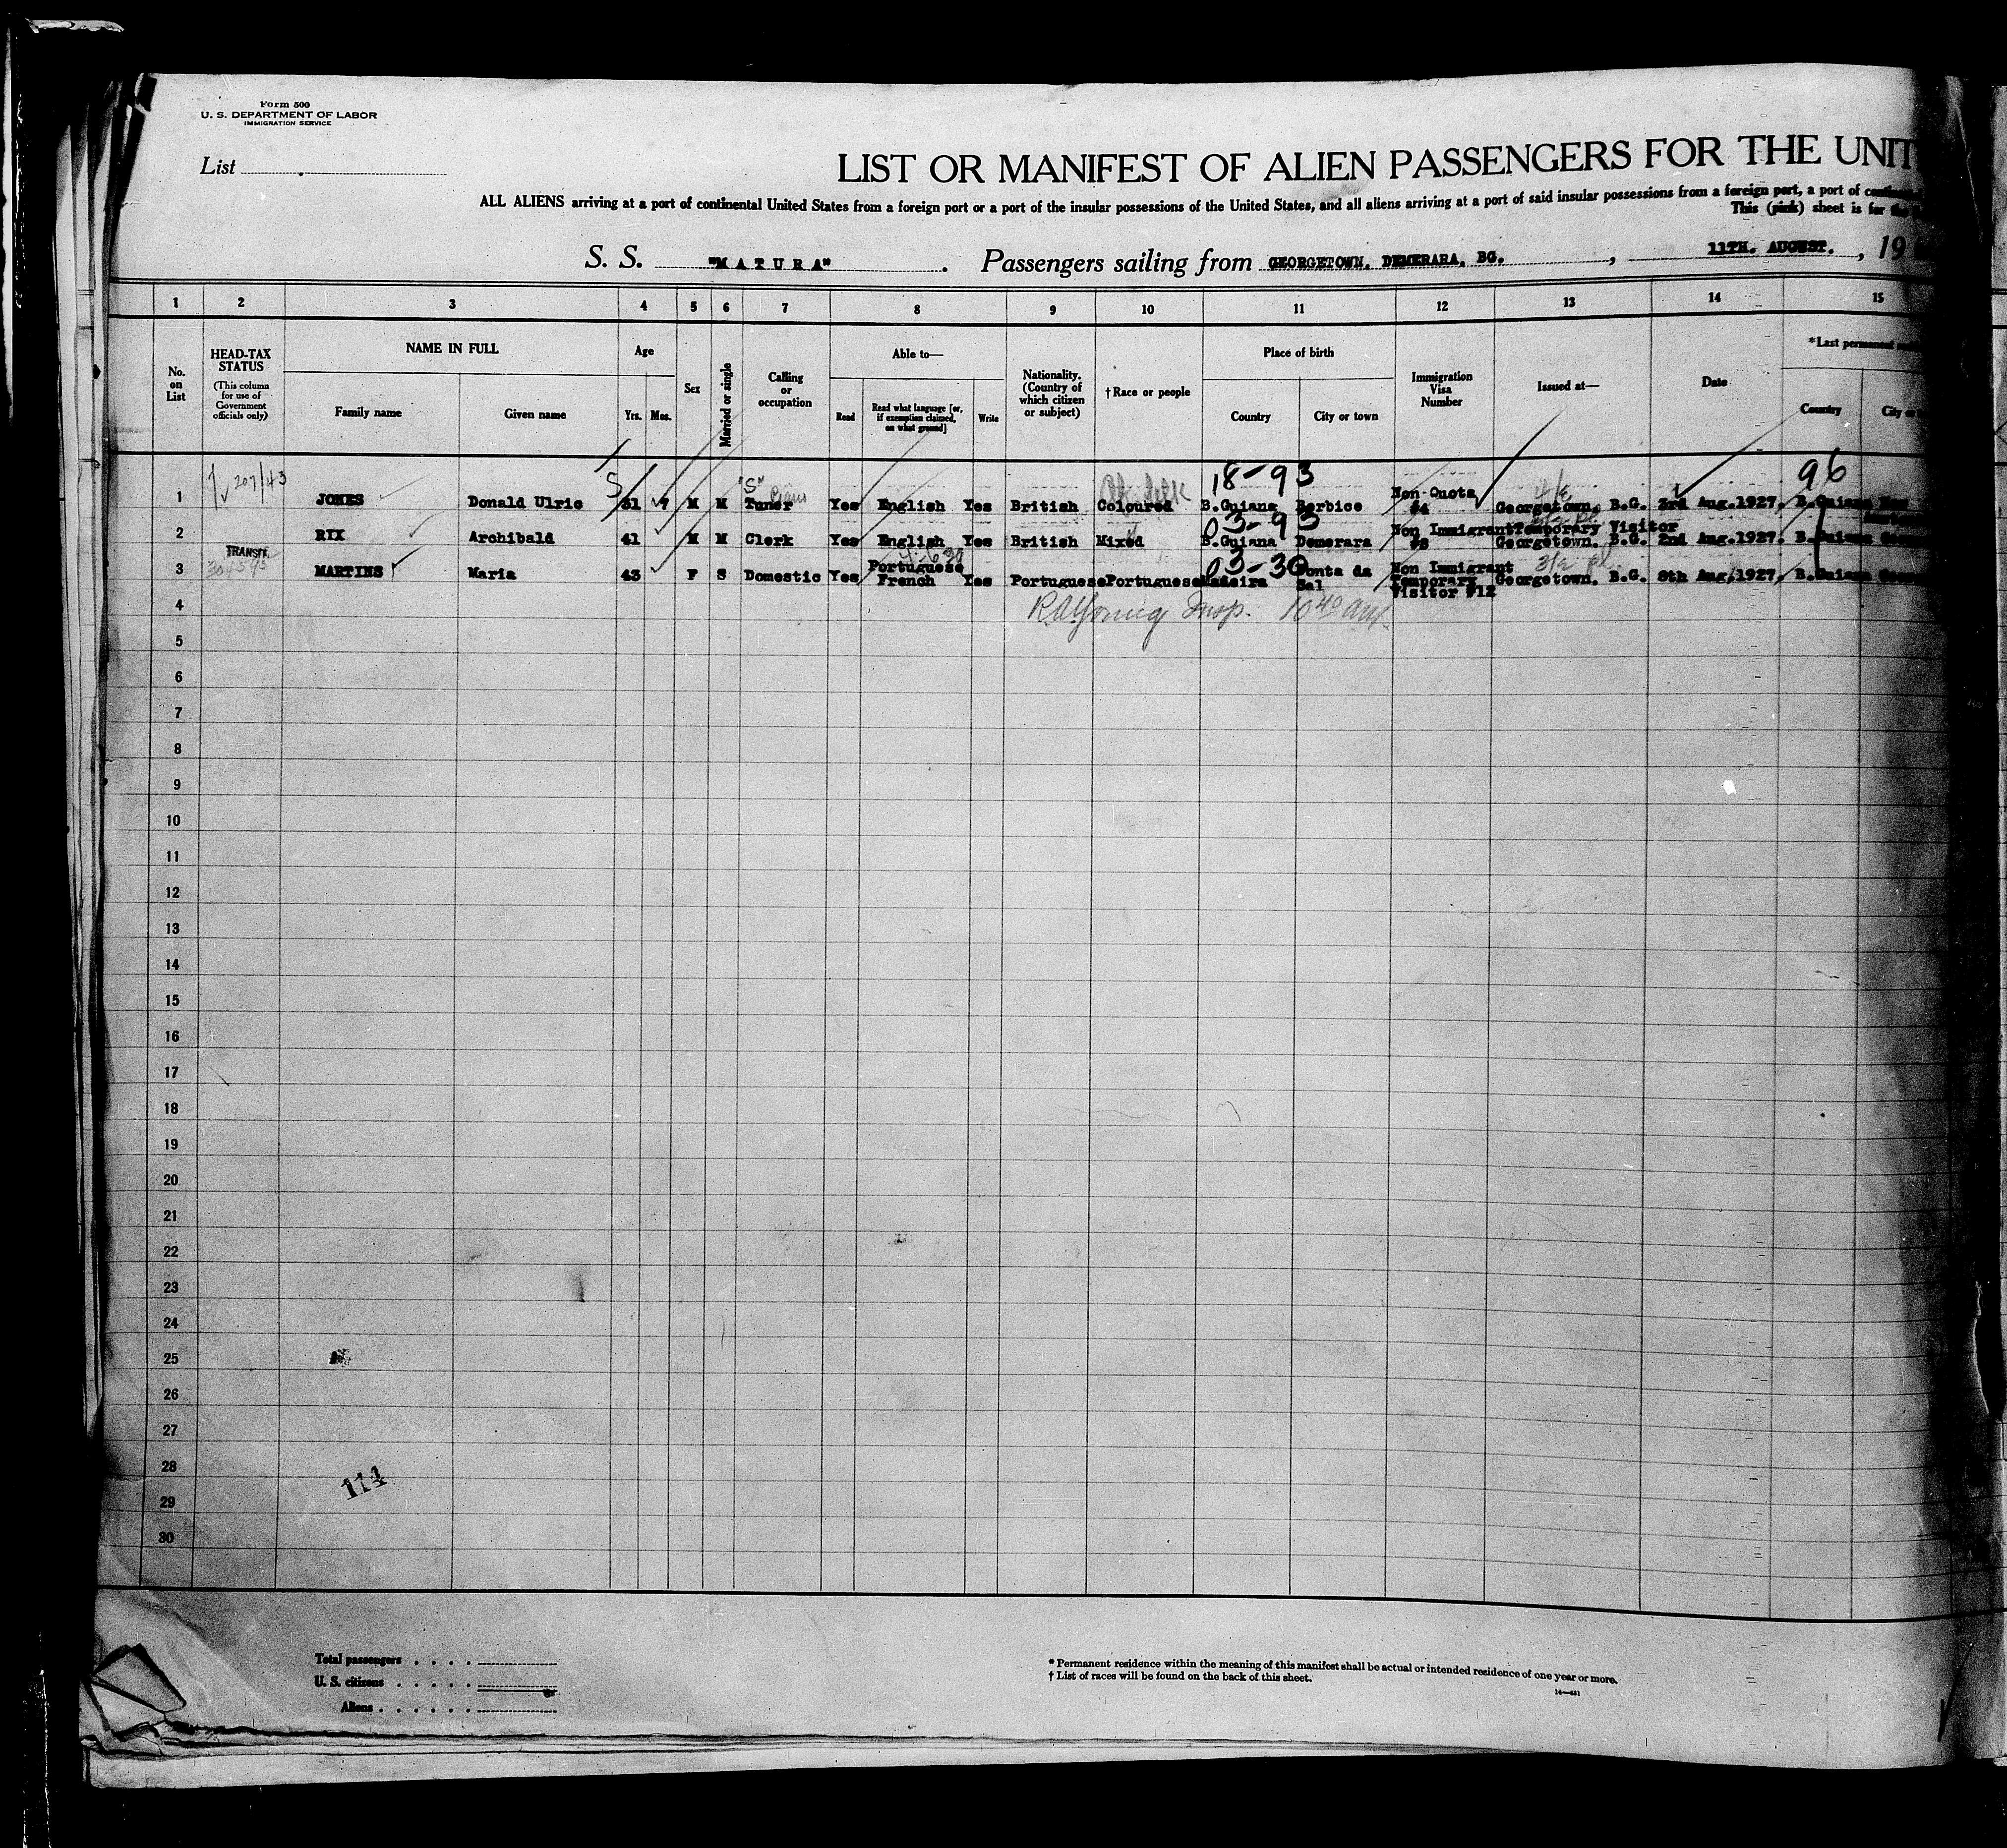 Form 500
U. S. DEPARTMENT OF LABOR
IMMIGRATION SERVICE
List
LIST OR MANIFEST OF ALIEN PASSENGERS FOR THE UNIT
ALL ALIENS arriving at a port of continental United States from a foreign port or a port of the insular possessions of the United States, and all aliens arriving at a port of said insular possessions from a foreign port, a port of
This (pink) sheet is for the
S. S. "MATURA". Passengers sailing from GEORGETOWN, DEMERARA, BG., 11TH. AUGUST., 19
1 2 3 4 5 6 7 8 9 10 11 12 13 14 15
No. on List
HEAD-TAX STATUS
(This column for use of Government officials only)
NAME IN FULL
Family name Given name
Age
Yrs. Mos.
Sex
Married or single
Calling or occupation
Able to—
Read
Read what language [or, if exemption claimed, on what ground]
Write
Nationality. (Country of which citizen or subject)
† Race or people
Place of birth
Country City or town
Immigration Visa Number
Issued at—
Date
*Last
Country City or
18-93 96
1 JONES Donald Ulric 31 7 M M "S" Tuner Piano Yes English Yes British Coloured B.Guiana Berbice Non-Quota #4 Georgetown, B.G. 3rd Aug.1927. B.Guiana
03-93
2 RIX Archibald 41 M M Clerk Yes English Yes British Mixed B.Guiana Demerara Non Immigrant Temporary Visitor #8 Georgetown. B.G. 2nd Aug.1927. B.Guiana
TRANSIT.
03-30
3 MARTINS Maria 43 F S Domestic Yes Portuguese French Yes Portuguese Portuguese Madeira Ponta da Sal Non Immigrant Temporary Visitor #12 Georgetown. B.G. 8th Aug.1927. B.Guiana
4
Insp. 10 40 am.
5
6
7
8
9
10
11
12
13
14
15
16
17
18
19
20
21
22
23
24
25
26
27
28
114
29
30
Total passengers
U. S. citizens
Aliens
* Permanent residence within the meaning of this manifest shall be actual or intended residence of one year or more.
† List of races will be found on the back of this sheet.